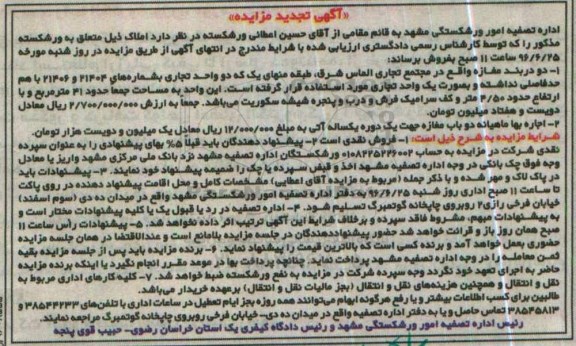 «آگهی تجدید مزایده»
اداره تصفیه امور ورشکستگی مشهد به قائم مقامی از آقای حسین اعطائی ورشکسته در نظر دارد املاک ذیل متعلق به ورشکسته
مذکور را که توسط کارشناس رسمی دادگستری ارزیابی شده با شرایط مندرج در انتهای آگهی از طریق مزایده در روز شنبه مورخه
۹۶/۶/۲۵ ساعت ۱۱ صبح بفروش برساند:
۱- دو دربند مغازه واقع در مجتمع تجاری الماس شرق، طبقه منهای یک که دو واحد تجاری بشماره‌های ۲۱۴۰۴ و ۲۱۴۰۶ با هم
حدفاصلی نداشته و بصورت یک واحد تجاری مورد استفاده قرار گرفته است. این واحد به مساحت جمعا حدود ۴۱ مترمربع و با
ارتفاع حدود ۳/۵۰ متر و کف سرامیک فرش و درب و پنجره شیشه سکوریت می‌باشد. جمعا به ارزش ۲/۷۰۰/۰۰۰/۰۰۰ ریال معادل
دویست و هفتاد میلیون تومان.
۲- اجاره بها ماهیانه دو باب مغازه جهت یک دوره یکساله آتی به مبلغ ۱۲/۰۰۰/۰۰۰ ریال معادل یک میلیون و دویست هزار تومان.
شرایط مزایده به شرح ذیل است: ۱- فروش نقدی است ۲- پیشنهاد دهندگان باید قبلاً ۵٪ بهای پیشنهادی را به عنوان سپرده
نقدی شرکت در مزایده به حساب ورشکستگان اداره تصفیه مشهد نزد بانک ملی مرکزی مشهد واریز یا معادل
وجه فوق چک بانکی در وجه اداره تصفیه مشهد اخذ و قبض سپرده یا چک را ضمیمه پیشنهاد خود نمایند. ۳- پیشنهادات باید
در پاک لاک و مهر شده و با ذکر جمله (مربوط به مزایده آقای اعطایی) مشخصات کامل و محل اقامت پیشنهاد دهنده در روی پاکت
تا ساعت ۱۱ صبح اداری روز شنبه ۹۶/۶/۲۵ به دفتر اداره تصفیه امور ورشکستگی مشهد واقع در میدان ده دی (سوم اسفند)
خیابان فرخی رازی۲ روبروی چاپخانه گوتمبرگ تسلیم شود. ۴- اداره تصفیه در رد یا قبول یک یا کلیه پیشنهادات مختار است و
به پیشنهادات مبهم، مشروط فاقد سپرده و برخلاف شرایط این آگهی ترتیب اثر داده نخواهد شد. ۵- پیشنهادات رأس ساعت ۱۱
صبح همان روز باز و قرائت خواهد شد حضور پیشنهاددهندگان در جلسه مزایده بلامانع است و عندالاقتضا در همان جلسه مزایده
حضوری بعمل خواهد آمد و برنده کسی است که بالاترین قیمت را پیشنهاد نماید. ۶- برنده مزایده باید پس از جلسه مزایده بقیه
ثمن معامله را در وجه اداره تصفیه مشهد پرداخت نماید. چنانچه پرداخت بها در موعد مقرر انجام نگیرد یا اینکه برنده مزایده
حاضر به اجرای تعهد خود نگردد وجه سپرده شرکت در مزایده به نفع ورشکسته ضبط خواهد شد. ۷- کلیه کارهای اداری مربوط به
نقل و انتقال و همچنین هزینه‌های نقل و انتقال (بجز مالیات نقل و انتقال) برعهده خریدار می‌باشد.
طالبین برای کسب اطلاعات بیشتر و یا رفع هرگونه ابهام می‌توانند همه روزه بجز ایام تعطیل در ساعات اداری با تلفن‌های ۳۸۵۴۴۲۳۳ و
۳۸۵۴۵۸۱۳ تماس حاصل و یا به دفتر اداره تصفیه واقع در میدان ده دی- خیابان فرخی روبروی چاپخانه گوتمبرگ مراجعه نمایند.
رئیس اداره تصفیه امور ورشکستگی مشهد و رئیس دادگاه کیفری یک استان خراسان رضوی- حبیب قوی پنجه